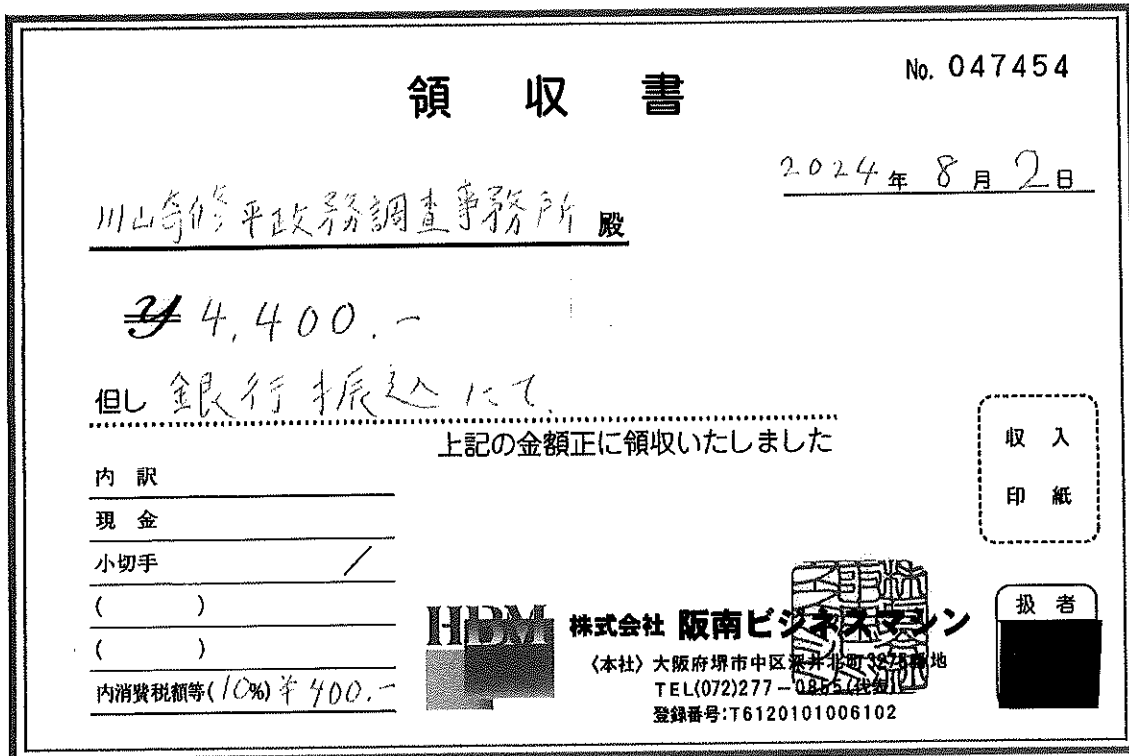 No. 047454
領収書
2024年 8月 2日
川崎修平政務調査事務所 殿
¥ 4,400.-
但し 銀行振込にて.
上記の金額正に領収いたしました
収入
印紙
内訳
現金
小切手 /
( )
( )
内消費税額等(10%) ¥400.-
HBM
株式会社 阪南ビジネスマシン
〈本社〉大阪府堺市中区深井北町3275番地
TEL(072)277-0855(代表)
登録番号:T6120101006102
扱者